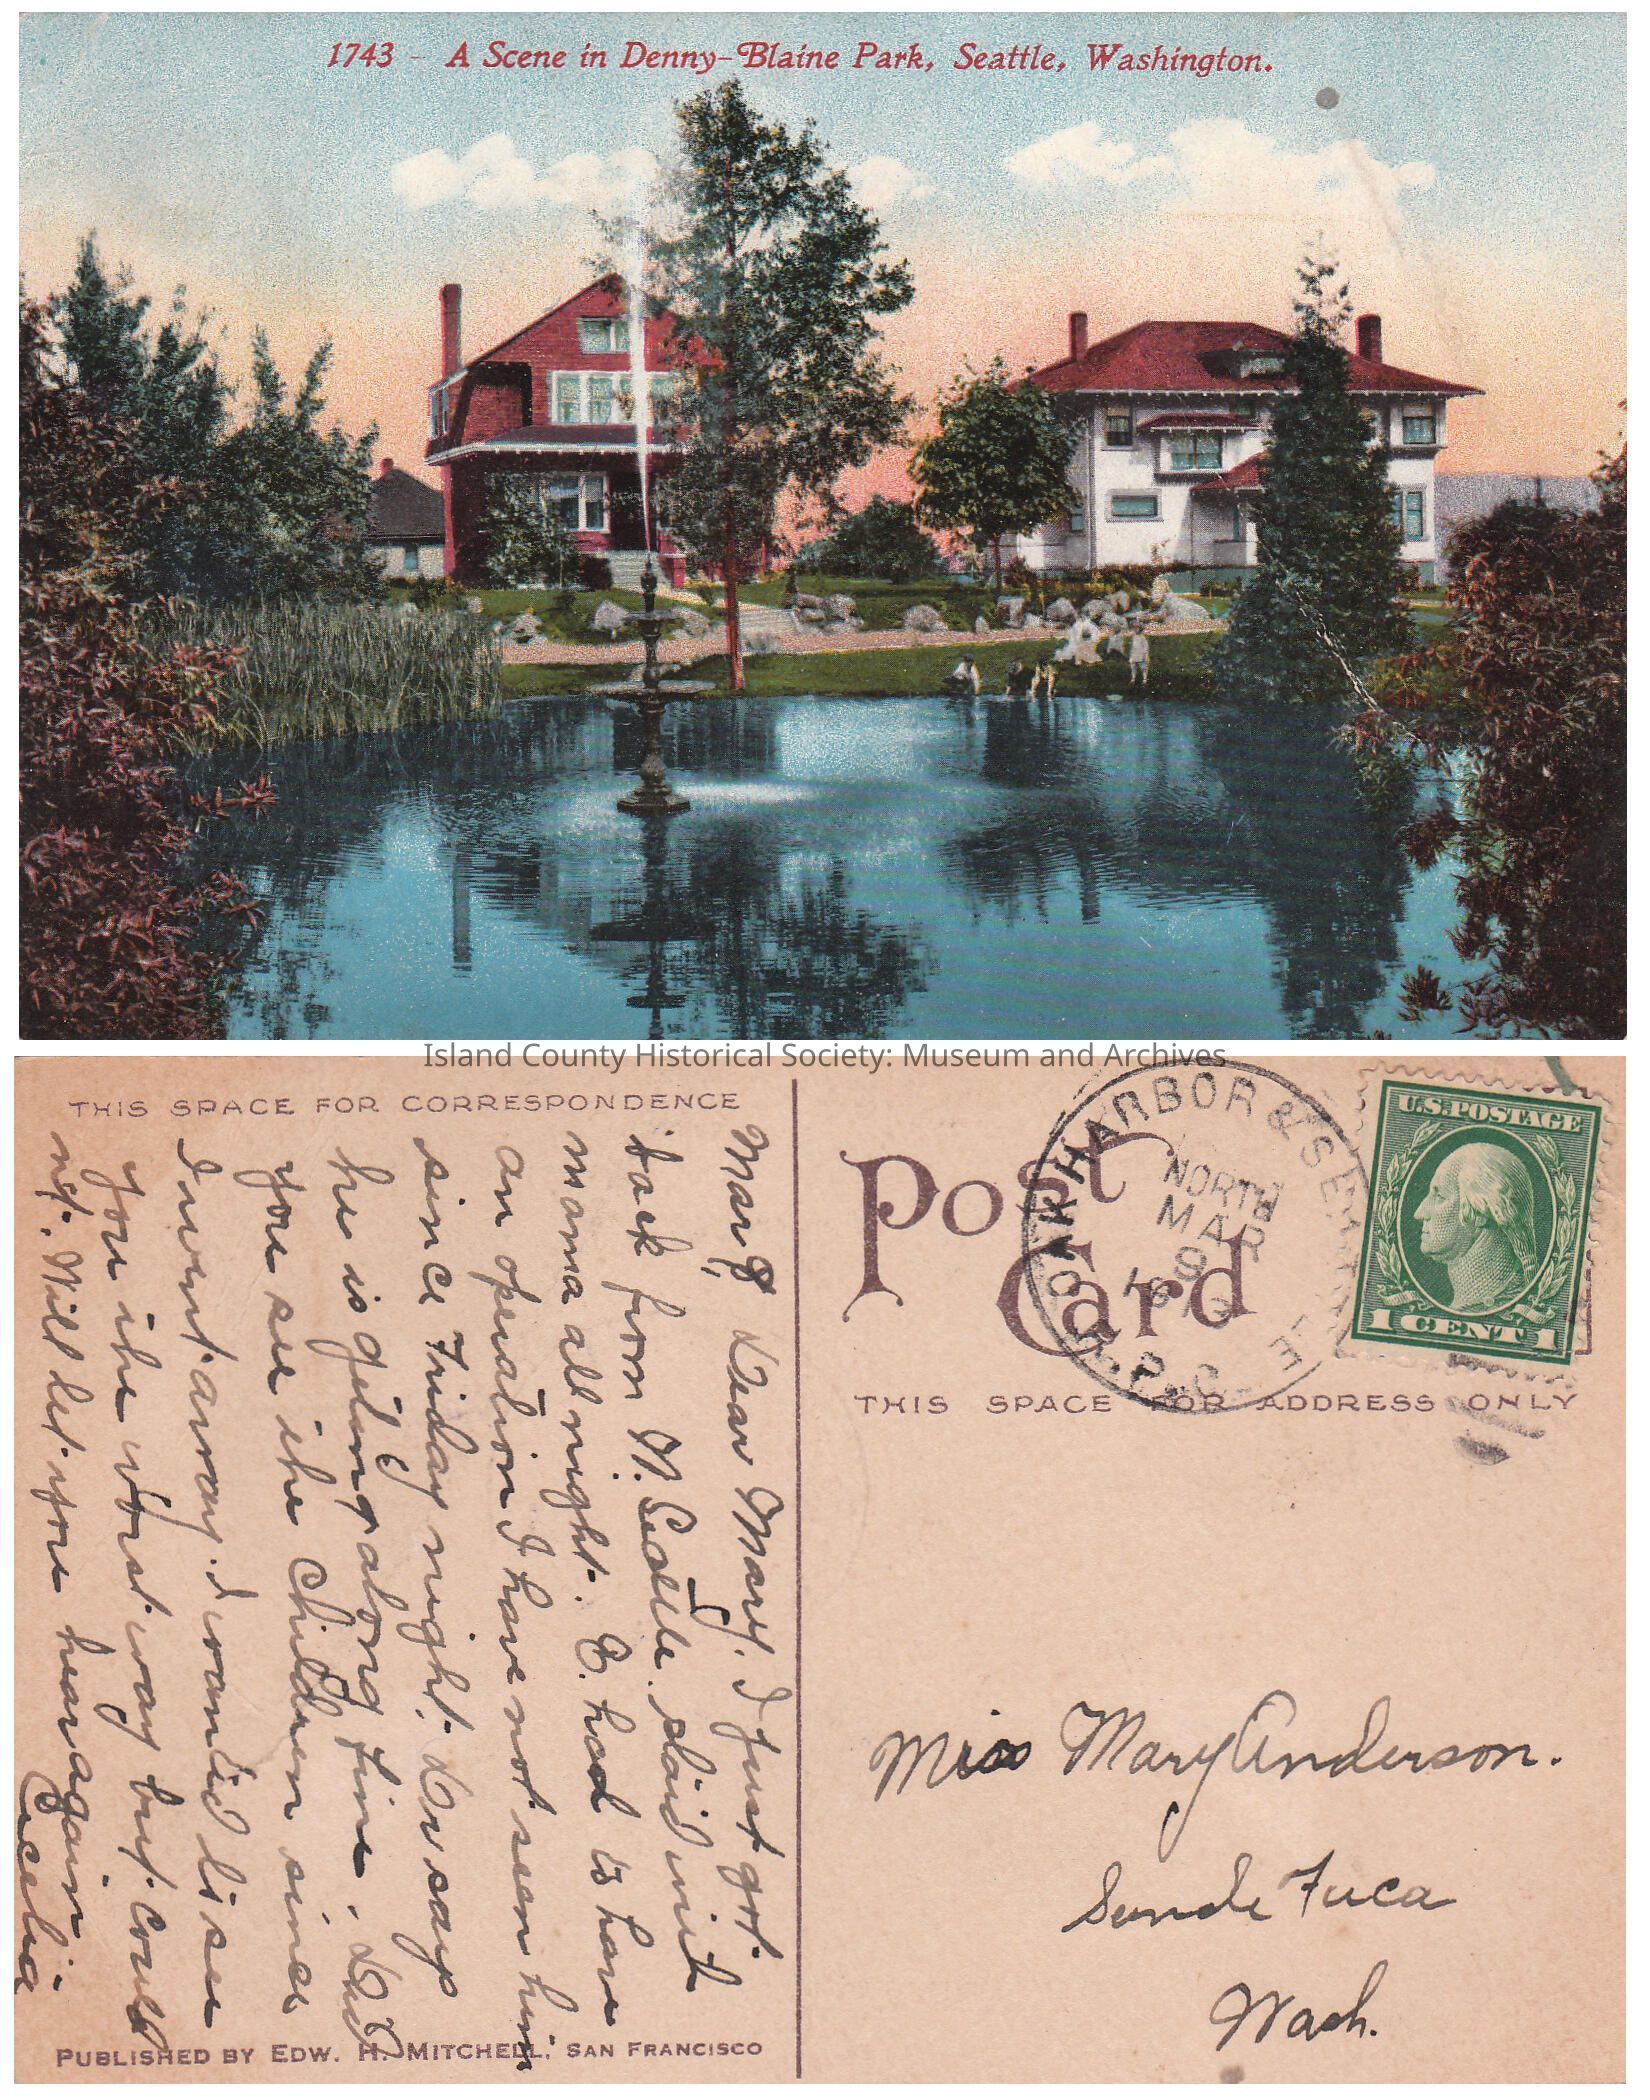 1743 - A Scene in Denny-Blaine Park, Seattle, Washington.
Island County Historical Society: Museum and Archives
THIS SPACE FOR CORRESPONDENCE
Dear Mary. I just got
back from N. Seattle. staid with
mama all night. B. had to have
an operation I have not seen him
since Friday night. Dr says
he is getting along fine. Did
you see the children since
I went away. I wanted to see
you the worst way but could
not. Will let you hear again
Celia
PUBLISHED BY EDW. H. MITCHELL, SAN FRANCISCO
Post Card
OAK HARBOR & SEATTLE
NORTH
MAR
9
R.P.O.
U.S. POSTAGE
1 CENT 1
THIS SPACE FOR ADDRESS ONLY
Miss Mary Anderson.
Sunde Fuca
Wash.